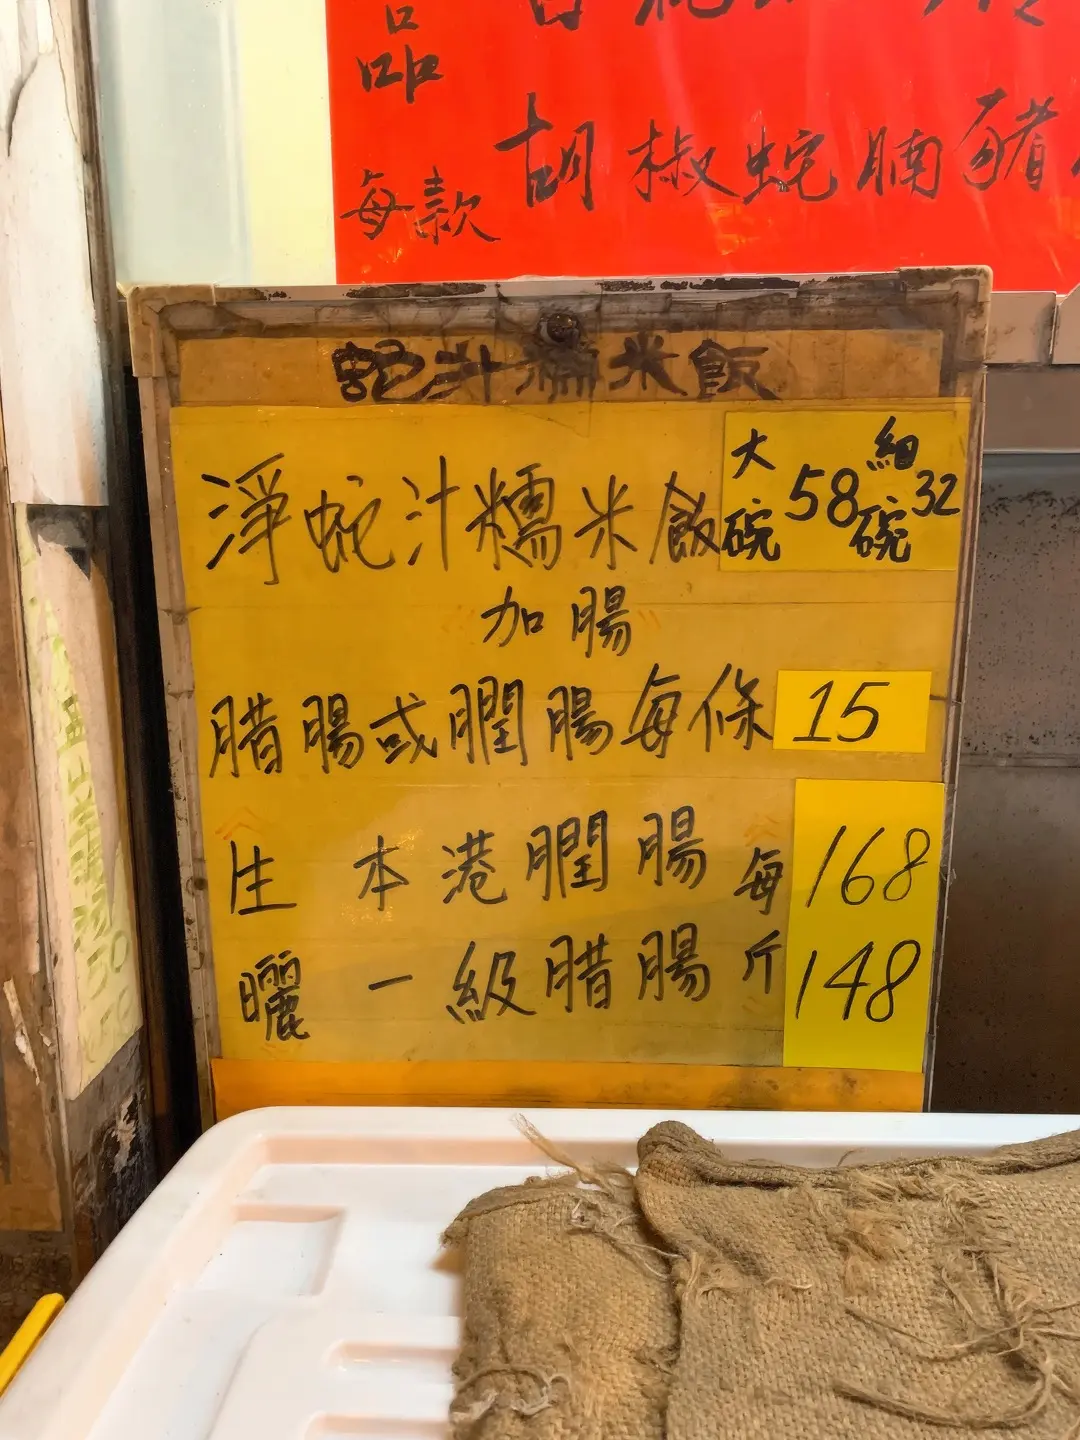 品
每款
胡椒蛇腩豬
蛇汁糯米飯
淨蛇汁糯米飯 大碗 58 細碗 32
《加腸》
腊腸或膶腸每條 15
生 本港膶腸 每 168
曬 一級腊腸 斤 148